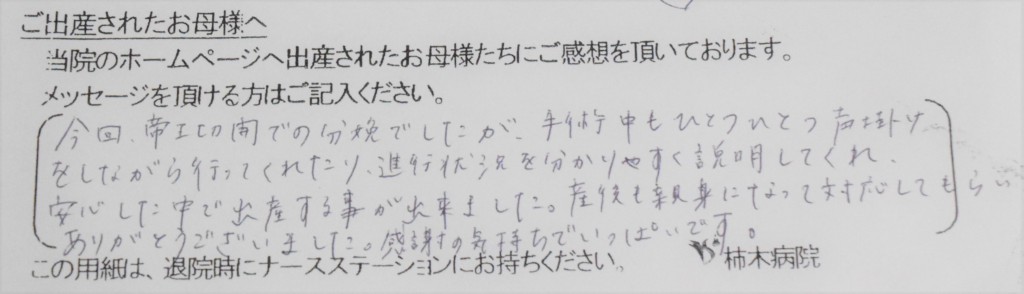 ご出産されたお母様へ
当院のホームページへ出産されたお母様たちにご感想を頂いております。
メッセージを頂ける方はご記入ください。
今回、帝王切開での分娩でしたが、手術中もひとつひとつ声掛け
をしながら行ってくれたり、進行状況を分かりやすく説明してくれ、
安心した中で出産する事が出来ました。産後も親身になって対応してもらい
ありがとうございました。感謝の気持ちでいっぱいです。
この用紙は、退院時にナースステーションにお持ちください。 柿木病院